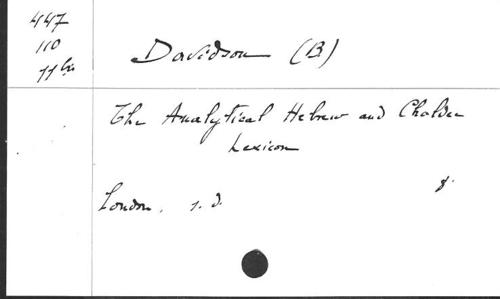 447
110
Davidson (B)
11 bis
The Analytical Hebrew and Chaldee
Lexicon
London, s. d.